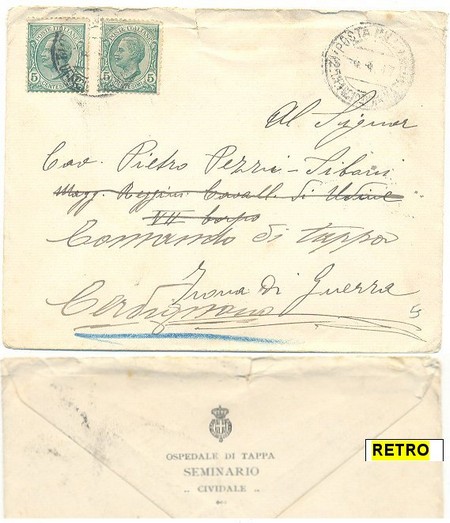 POSTE ITALIANE POSTE ITALIANE
5 5 5 5
CENTESIMI
POSTA MILITARE
Al Signor
Cav. Pietro Pezzi-Siboni
Magg. Reggim. Cavall. di Udine
VII Corpo
Comando di tappa
Zona di Guerra
Cervignano
OSPEDALE DI TAPPA
SEMINARIO
„ CIVIDALE „
RETRO